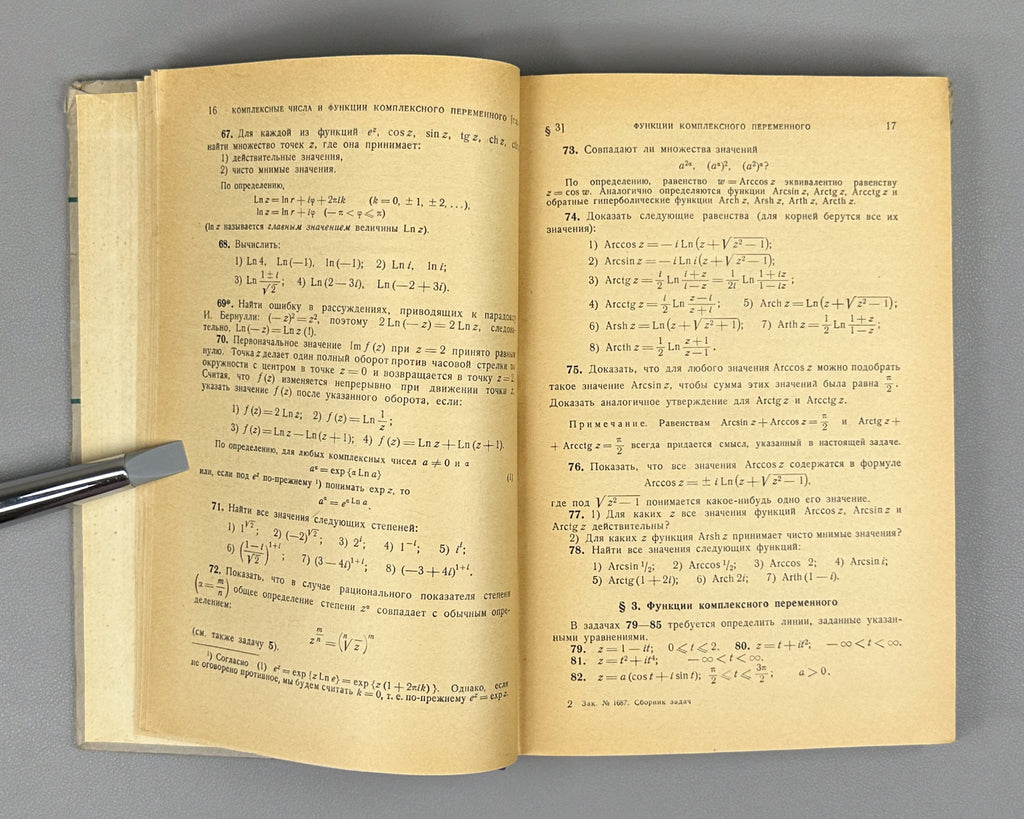 16 КОМПЛЕКСНЫЕ ЧИСЛА И ФУНКЦИИ КОМПЛЕКСНОГО ПЕРЕМЕННОГО
67. Для каждой из функций e^z, cos z, sin z, tg z, ch z,
найти множество точек z, где она принимает:
1) действительные значения,
2) чисто мнимые значения.
По определению,
Ln z = ln r + iφ + 2πik (k = 0, ± 1, ± 2, ...),
ln z = ln r + iφ (— π < φ ⩽ π)
(ln z называется главным значением величины Ln z).
68. Вычислить:
1) Ln 4, Ln (—1), ln (—1); 2) Ln i, ln i;
3) Ln (1 ± i)/√2; 4) Ln (2 — 3i), Ln (—2 + 3i).
69*. Найти ошибку в рассуждениях, приводящих к
И. Бернулли: (— z)² = z², поэтому 2 Ln (— z) = 2 Ln z,
тельно, Ln (— z) = Ln z (!).
70. Первоначальное значение Im f (z) при z = 2 принято
нулю. Точка z делает один полный оборот против часовой стрелки
окружности с центром в точке z = 0 и возвращается в точку
Считая, что f (z) изменяется непрерывно при движении точки
указать значение f (z) после указанного оборота, если:
1) f (z) = 2 Ln z; 2) f (z) = Ln 1/z;
3) f (z) = Ln z — Ln (z + 1); 4) f (z) = Ln z + Ln (z + 1).
По определению, для любых комплексных чисел a ≠ 0 и α
a^α = exp {α Ln a} (1)
или, если под e^z по-прежнему ¹) понимать exp z, то
a^α = e^(α Ln a).
71. Найти все значения следующих степеней:
1) 1^√2; 2) (—2)^√2; 3) 2^i; 4) 1^(—i); 5) i^i;
6) ((1 — i)/√2)^(1+i); 7) (3 — 4i)^(1+i); 8) (—3 + 4i)^(1+i).
72. Показать, что в случае рационального показателя степени
(α = m/n) общее определение степени z^α совпадает с обычным опре-
делением:
z^(m/n) = (ⁿ√z)^m
(см. также задачу 5).
¹) Согласно (1) e^z = exp {z Ln e} = exp {z (1 + 2πik)}. Однако, если
не оговорено противное, мы будем считать k = 0, т. е. по-прежнему e^z = exp z.
§ 3] ФУНКЦИИ КОМПЛЕКСНОГО ПЕРЕМЕННОГО 17
73. Совпадают ли множества значений
a^(2α), (a^α)², (a²)^α?
По определению, равенство w = Arccos z эквивалентно равенству
z = cos w. Аналогично определяются функции Arcsin z, Arctg z, Arcctg z и
обратные гиперболические функции Arch z, Arsh z, Arth z, Arcth z.
74. Доказать следующие равенства (для корней берутся все их
значения):
1) Arccos z = — i Ln (z + √(z² — 1));
2) Arcsin z = — i Ln i (z + √(z² — 1));
3) Arctg z = i/2 Ln (i + z)/(i — z) = 1/(2i) Ln (1 + iz)/(1 — iz);
4) Arcctg z = i/2 Ln (z — i)/(z + i); 5) Arch z = Ln (z + √(z² — 1));
6) Arsh z = Ln (z + √(z² + 1)); 7) Arth z = 1/2 Ln (1 + z)/(1 — z);
8) Arcth z = 1/2 Ln (z + 1)/(z — 1).
75. Доказать, что для любого значения Arccos z можно подобрать
такое значение Arcsin z, чтобы сумма этих значений была равна π/2.
Доказать аналогичное утверждение для Arctg z и Arcctg z.
Примечание. Равенствам Arcsin z + Arccos z = π/2 и Arctg z +
+ Arcctg z = π/2 всегда придается смысл, указанный в настоящей задаче.
76. Показать, что все значения Arccos z содержатся в формуле
Arccos z = ± i Ln (z + √(z² — 1)).
где под √(z² — 1) понимается какое-нибудь одно его значение.
77. 1) Для каких z все значения функций Arccos z, Arcsin z и
Arctg z действительны?
2) Для каких z функция Arsh z принимает чисто мнимые значения?
78. Найти все значения следующих функций:
1) Arcsin 1/2; 2) Arccos 1/2; 3) Arccos 2; 4) Arcsin i;
5) Arctg (1 + 2i); 6) Arch 2i; 7) Arth (1 — i).
§ 3. Функции комплексного переменного
В задачах 79—85 требуется определить линии, заданные указан-
ными уравнениями.
79. z = 1 — it; 0 ⩽ t ⩽ 2. 80. z = t + it²; — ∞ < t < ∞.
81. z = t² + it⁴; — ∞ < t < ∞.
82. z = a (cos t + i sin t); π/2 ⩽ t ⩽ 3π/2; a > 0.
2 Зак. № 1687. Сборник задач